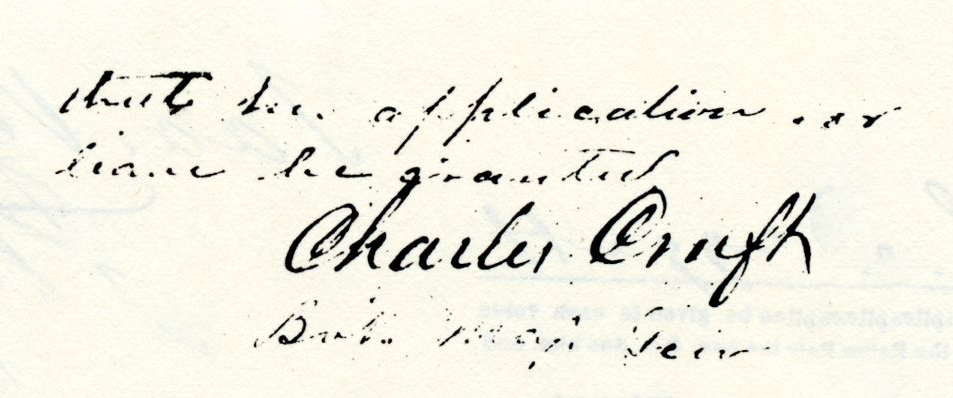 that the application for
leave be granted
Charles Croft
Brvt. Maj. Gen